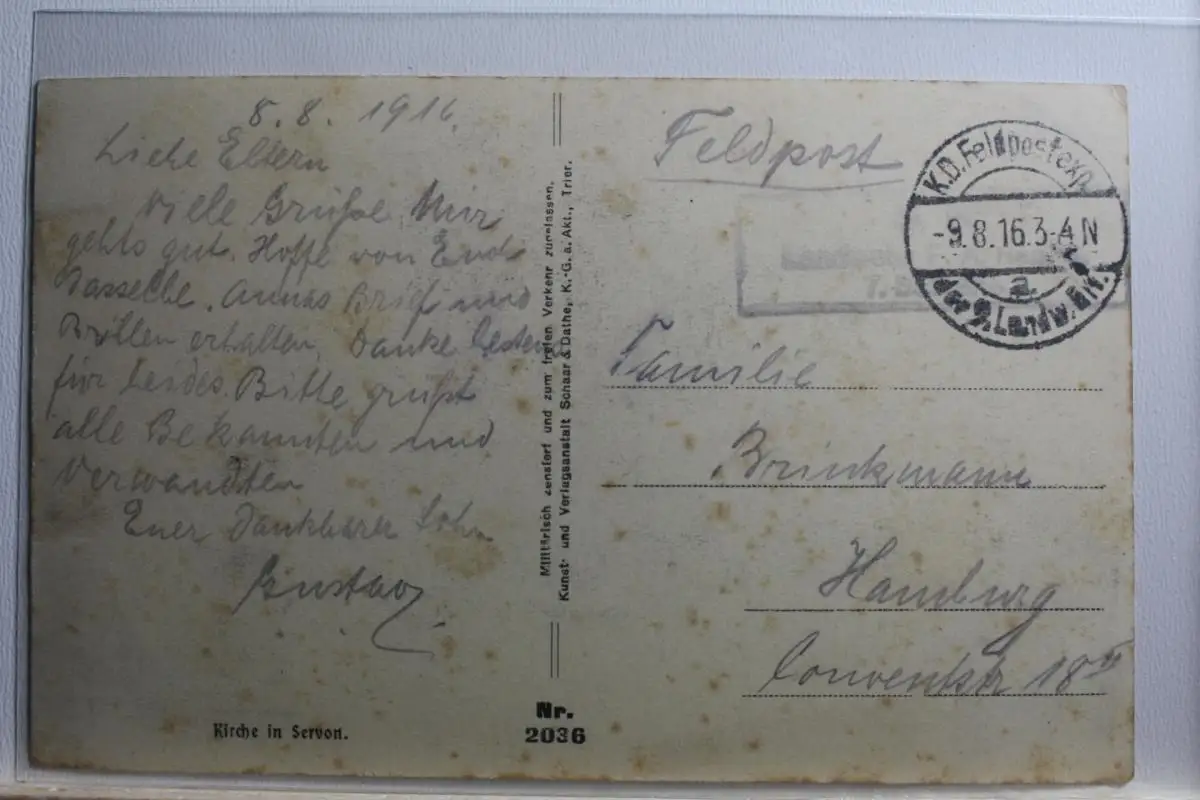 8. 8. 1916.
Liebe Eltern
Viele Grüße Mir
gehts gut. Hoffe von Euch
Dasselbe. Annas Brief und
Brillen erhalten, Danke bestens
für beides. Bitte grüßt
alle Bekannten und
Verwandten
Euer Dankbarer Sohn
Gustav.
Kirche in Servon.
Militärisch zensiert und zum freien Verkehr zugelassen.
Kunst- und Verlagsanstalt Schaar & Dathe, K.-G. a. Akt., Trier.
Nr.
2036
Feldpost
K.D.Feldpostexp.
-9.8.16.3-4N
a
der 9. Landw. Div.
7.
Familie
Brinkmann
Hamburg
Conventstr 18